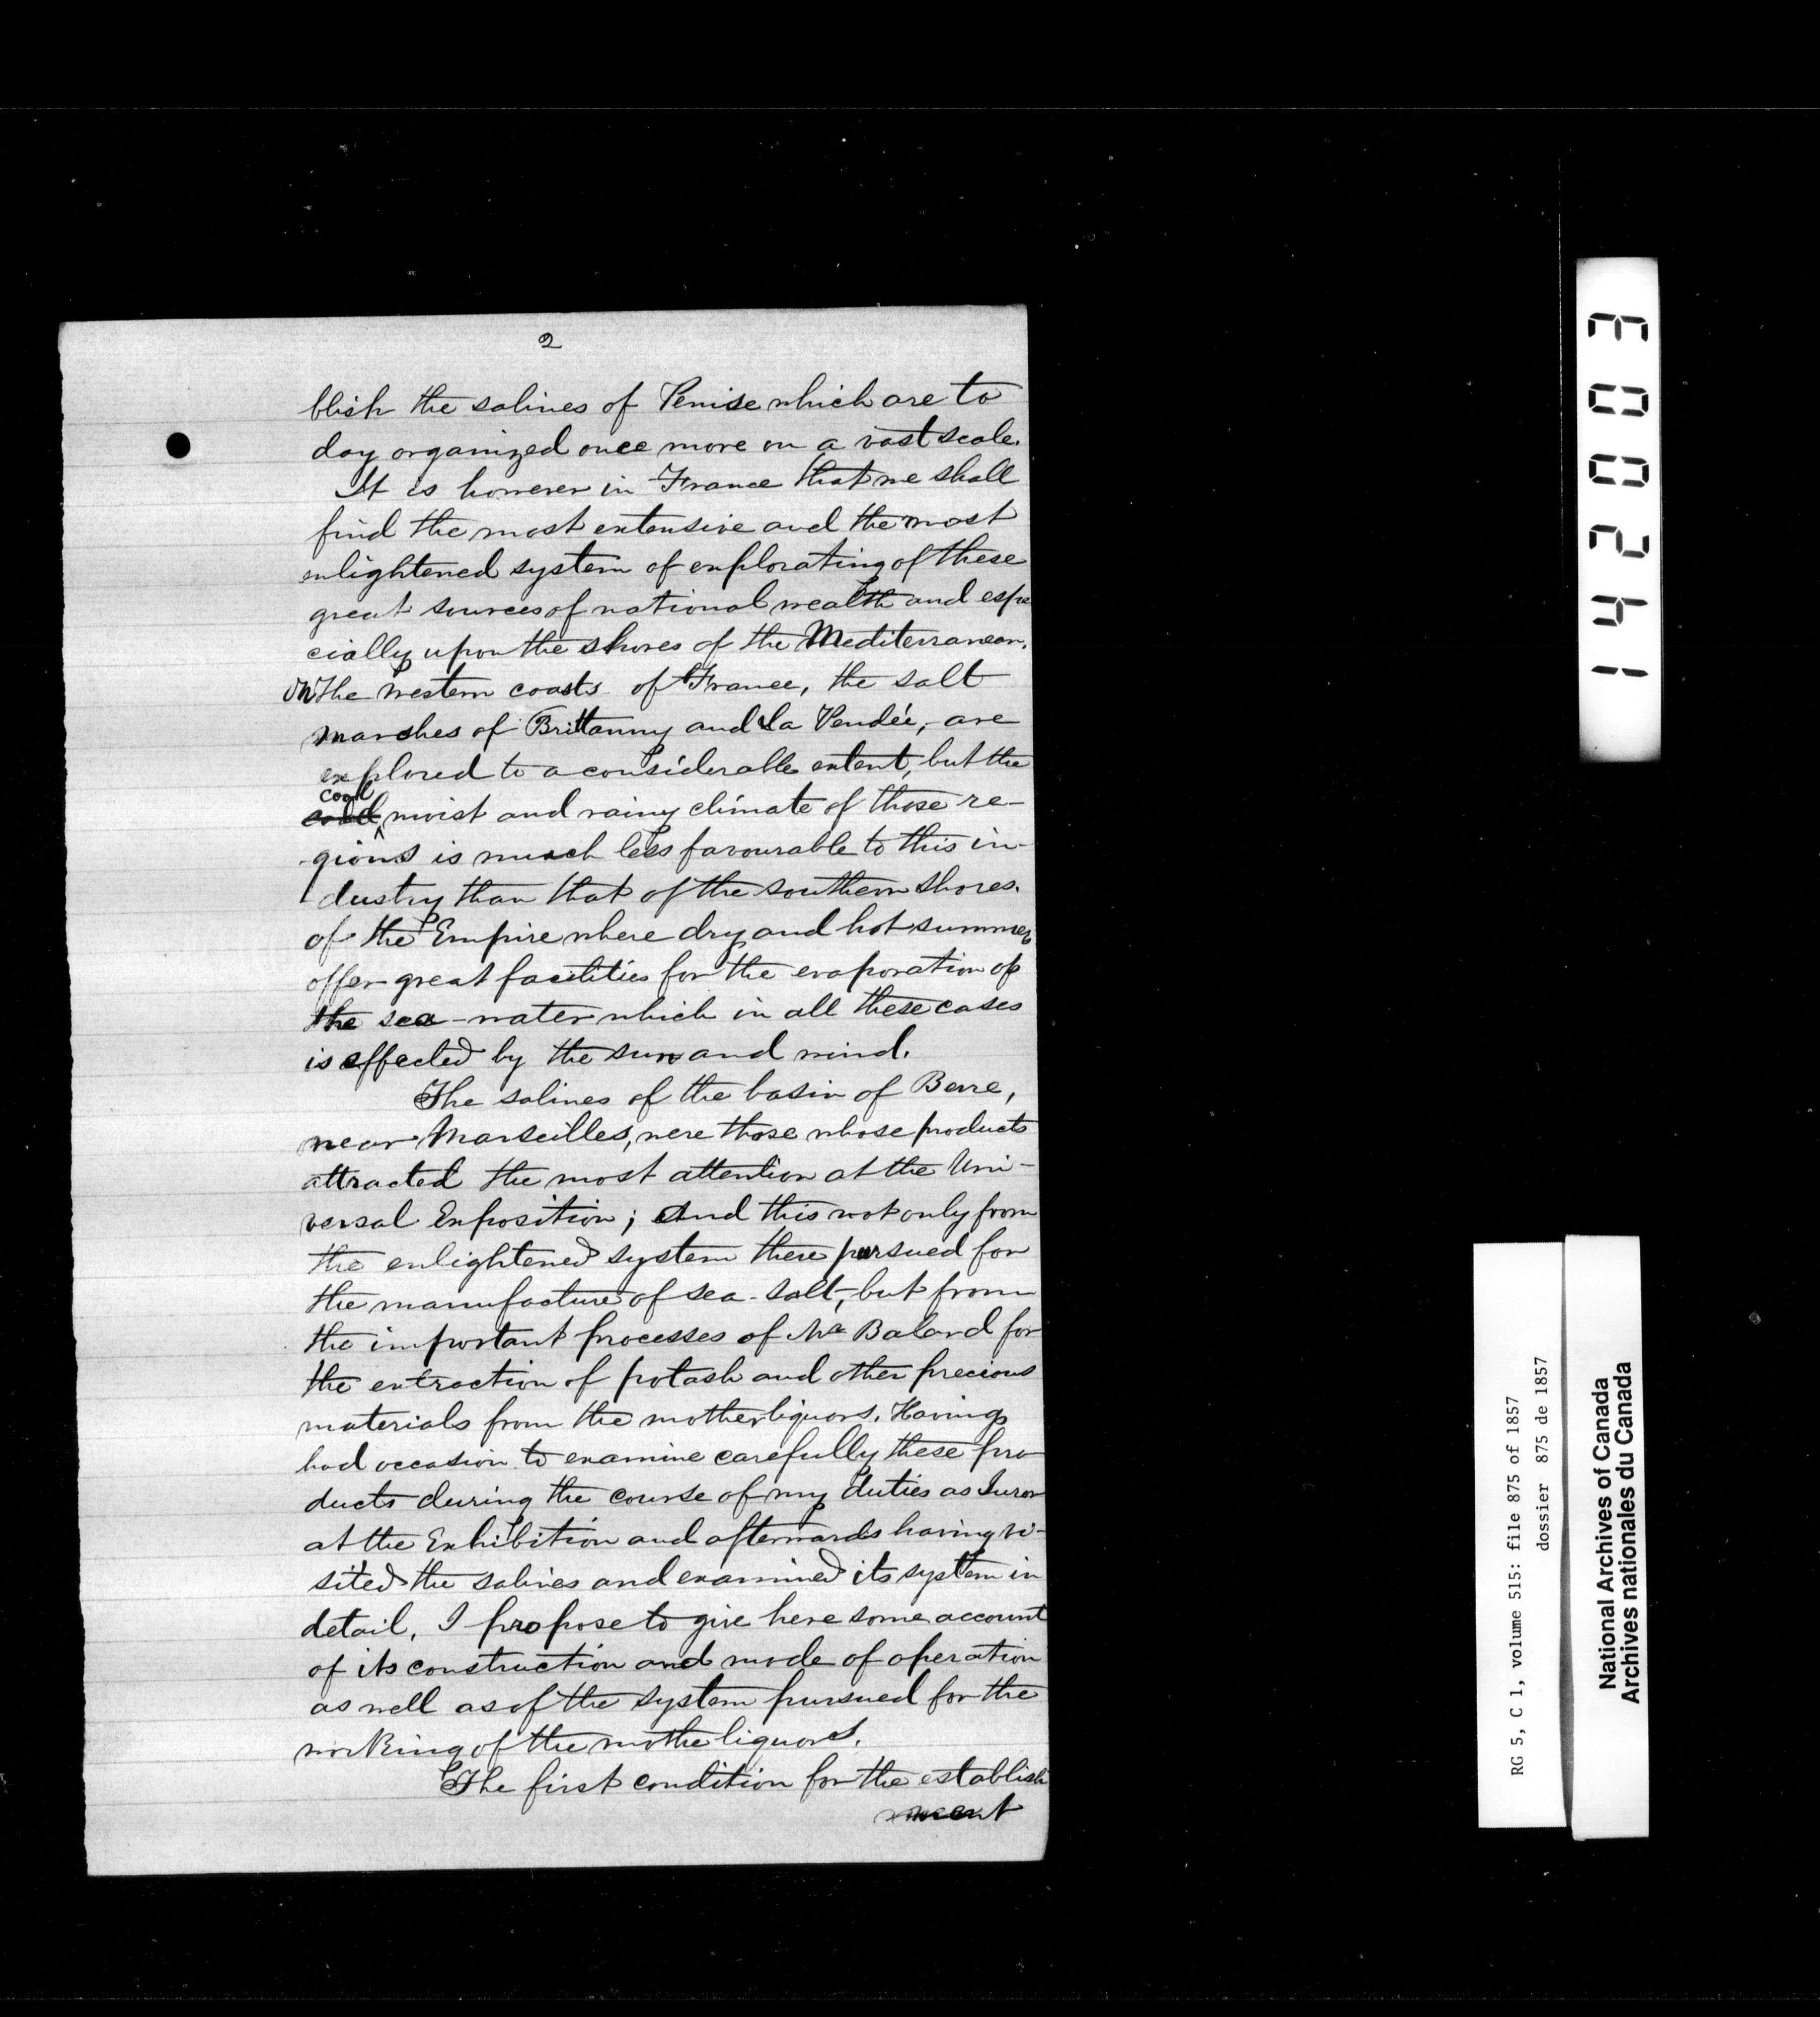 2
blish the salines of Venise which are to
day organized once more on a vast scale.
It is however in France that we shall
find the most extensive and the most
enlightened system of explorating of these
great sources of national wealth and espe
cially upon the shores of the Mediterranean.
On the western coasts of France, the salt
marshes of Brittanny and la Vendée, are
explored to a considerable extent, but the
cool
cold moist and rainy climate of those re-
-gions is much less favourable to this in-
dustry than that of the southern shores.
of the Empire where dry and hot summers
offer great facilities for the evaporation of
the sea-water which in all these cases
is effected by the sun and wind.
The salines of the basin of Berre,
near Marseilles, were those whose products
attracted the most attention at the Uni-
versal Exposition; And this not only from
the enlightened system there pursued for
the manufacture of sea-salt, but from
the important processes of Mr Balard for
the extraction of potash and other precious
materials from the mother liquors. Having
had occasion to examine carefully these pro
ducts during the course of my duties as Juror
at the Exhibition and afterwards having vi-
sited the salines and examined its system in
detail, I propose to give here some account
of its construction and mode of operation
as well as of the system pursued for the
working of the mothe liquors.
The first condition for the establish
ment
142003
RG 5, C 1, volume 515: file 875 of 1857
dossier 875 de 1857
National Archives of Canada
Archives nationales du Canada